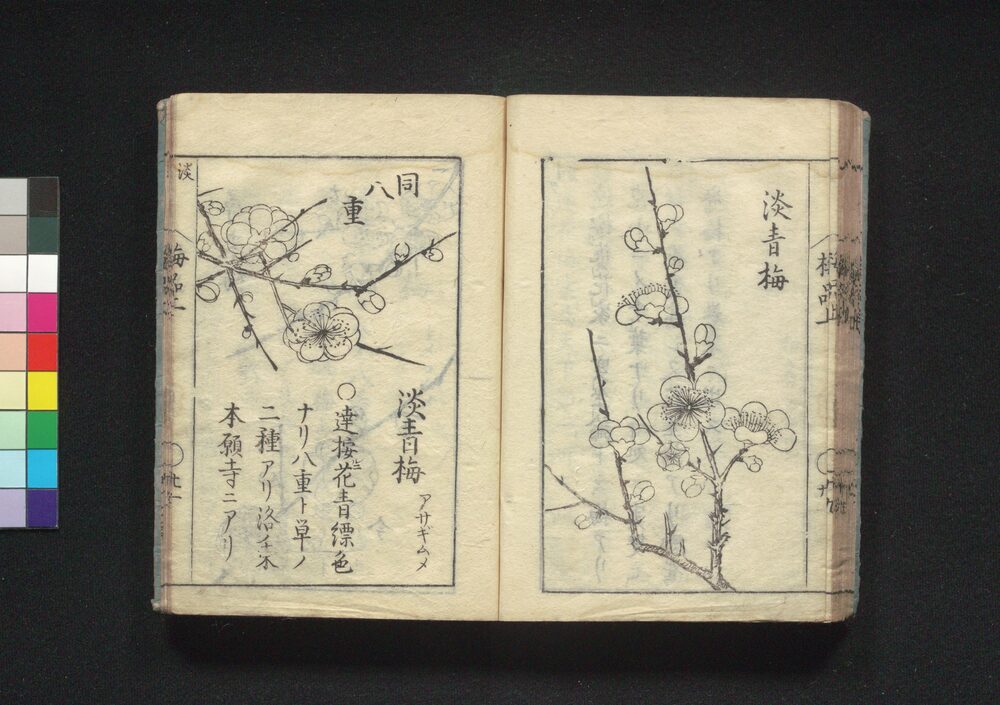 淡青梅
同
八
重
淡青梅
アサギムメ
○達按ニ花青縹色
ナリ八重ト単ノ
二種アリ洛
本願寺ニアリ
淡
梅品上